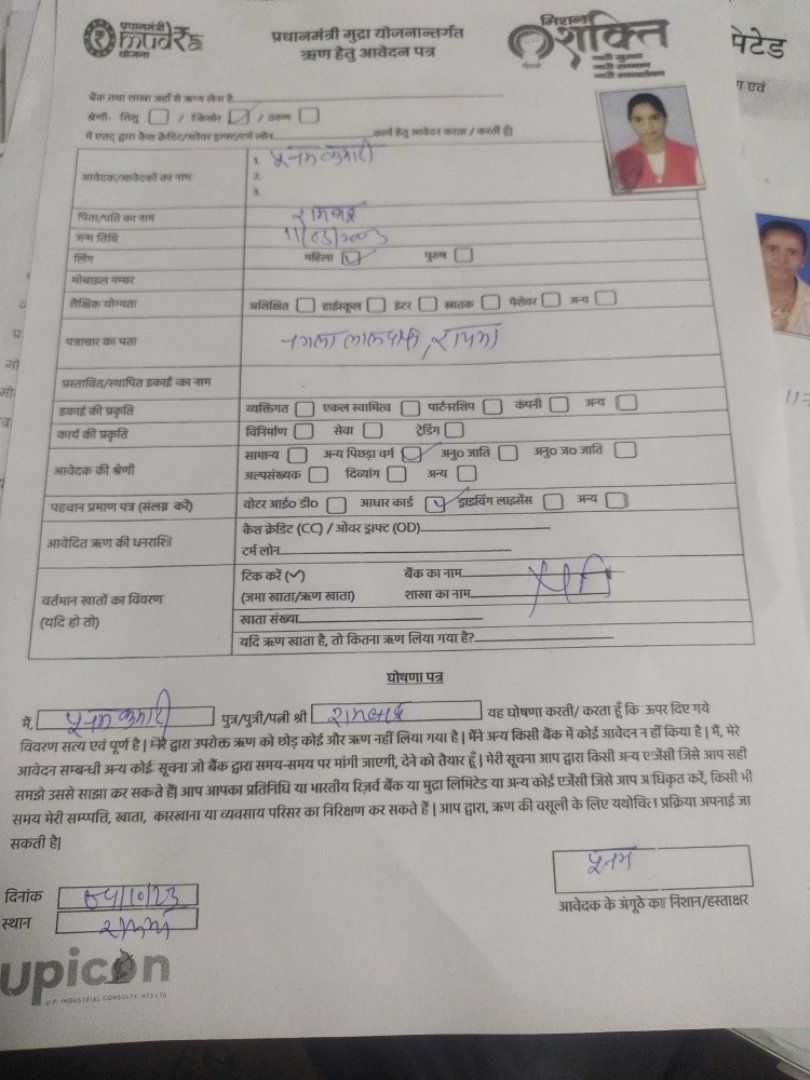 प्रधानमंत्री
mudra
योजना
प्रधानमंत्री मुद्रा योजनान्तर्गत
ऋण हेतु आवेदन पत्र
मिशन
शक्ति
नारी सुरक्षा
नारी सम्मान
नारी स्वावलंबन
पेटेड
ण एवं
बैंक तथा शाखा जहाँ से ऋण लेना है
श्रेणी- शिशु / किशोर / तरुण
मैं एतद् द्वारा कैश क्रेडिट/ओवर ड्राफ्ट/टर्म लोन कार्य हेतु आवेदन करता / करती हूँ।
आवेदक/आवेदकों का नाम
1. पूनम कुमारी
2.
3.
पिता/पति का नाम
जन्म तिथि 11/05/2003
लिंग महिला पुरुष
मोबाइल नम्बर
शैक्षिक योग्यता अलिखित हाईस्कूल इंटर स्नातक पेशेवर अन्य
पत्राचार का पता नगला लाल
प्रस्तावित/स्थापित इकाई का नाम
इकाई की प्रकृति व्यक्तिगत एकल स्वामित्व पार्टनरशिप कंपनी अन्य
कार्य की प्रकृति विनिर्माण सेवा ट्रेडिंग
आवेदक की श्रेणी सामान्य अन्य पिछड़ा वर्ग अनु० जाति अनु० ज० जाति
अल्पसंख्यक दिव्यांग अन्य
पहचान प्रमाण पत्र (संलग्न करें) वोटर आई० डी० आधार कार्ड ड्राइविंग लाइसेंस अन्य
आवेदित ऋण की धनराशि कैश क्रेडिट (CC) / ओवर ड्राफ्ट (OD)
टर्म लोन
वर्तमान खातों का विवरण
(यदि हो तो)
टिक करें (✓) बैंक का नाम
(जमा खाता/ऋण खाता) शाखा का नाम
खाता संख्या
यदि ऋण खाता है, तो कितना ऋण लिया गया है?
घोषणा पत्र
मैं, पूनम कुमारी पुत्र/पुत्री/पत्नी श्री यह घोषणा करती/ करता हूँ कि ऊपर दिए गये
विवरण सत्य एवं पूर्ण है | मेरे द्वारा उपरोक्त ऋण को छोड़ कोई और ऋण नहीं लिया गया है | मैंने अन्य किसी बैंक में कोई आवेदन नहीं किया है | मैं, मेरे
आवेदन सम्बन्धी अन्य कोई सूचना जो बैंक द्वारा समय-समय पर मांगी जाएगी, देने को तैयार हूँ | मेरी सूचना आप द्वारा किसी अन्य एजेंसी जिसे आप सही
समझे उससे साझा कर सकते हैं| आप आपका प्रतिनिधि या भारतीय रिज़र्व बैंक या मुद्रा लिमिटेड या अन्य कोई एजेंसी जिसे आप अधिकृत करें, किसी भी
समय मेरी सम्पत्ति, खाता, कारखाना या व्यवसाय परिसर का निरिक्षण कर सकते हैं | आप द्वारा, ऋण की वसूली के लिए यथोचित प्रक्रिया अपनाई जा
सकती है|
पूनम
आवेदक के अंगूठे का निशान/हस्ताक्षर
दिनांक 04/10/23
स्थान
upicon
U.P. INDUSTRIAL CONSULTANTS LTD